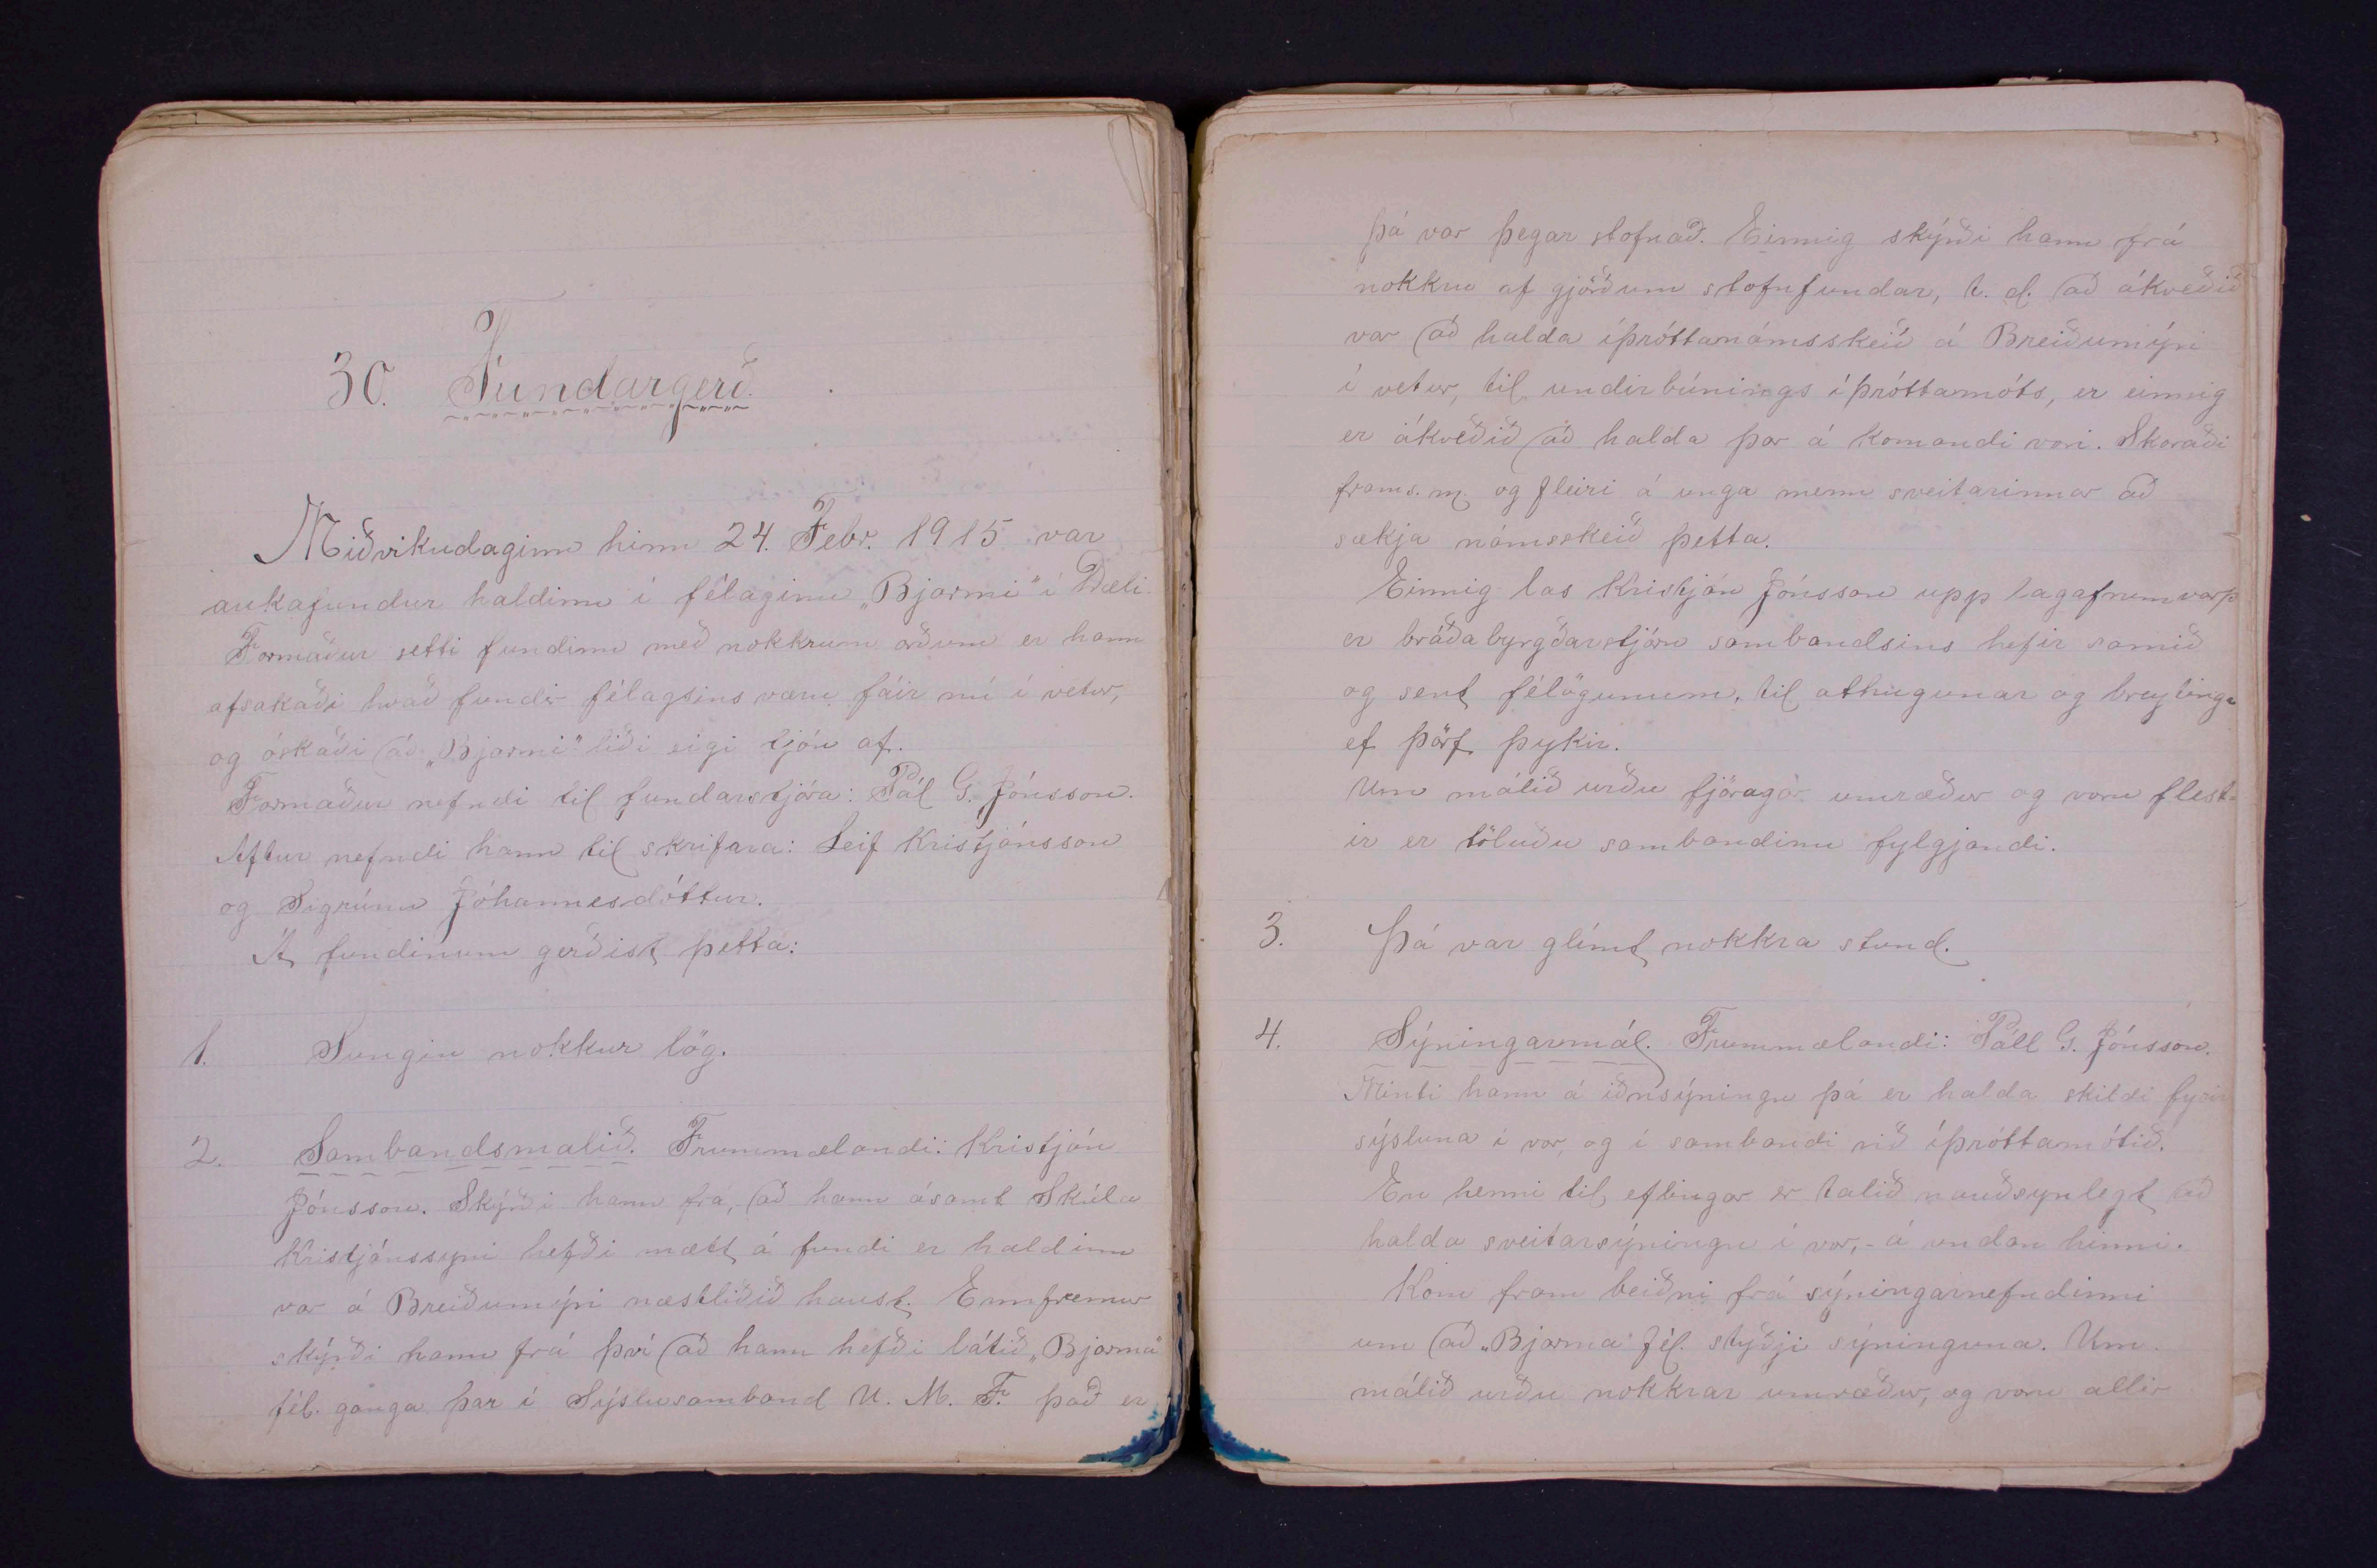 30. Fundargerð.
Miðvikudaginn hinn 24. Febr. 1915 var
aukafundur haldinn í félaginu „Bjarmi" í Dæli.
Formaður setti fundinn með nokkrum orðum er hann
afsakaði hvað fundir félagsins væru fáir nú í vetur,
og óskaði að „Bjarmi" liði eigi tjón af.
Formaður nefndi til fundarstjóra: Pál G. Jónsson.
Aftur nefndi hann til skrifara: Leif Kristjánsson
og Sigrúnu Jóhannesdóttur.
Á fundinum gerðist þetta:
1. Sungin nokkur lög.
2. Sambandsmalið. Frummælandi: Kristján
Jónsson. Skýrði hann frá, að hann ásamt Skúla
Kristjánssyni hefði mætt á fundi er haldinn
var á Breiðumýri næstliðið haust. Ennfremur
skýrði hann frá því að hann hefði látið „Bjarma"
fél. ganga þar í Sýslusamband U. M. F. það er
þá var þegar stofnað. Einnig skýrði hann frá
nokkru af gjörðum stofnfundar, t. d. að ákveðið
var að halda íþróttanámsskeið á Breiðumýri
í vetur, til undirbúnings íþróttamóts, er einnig
er ákveðið að halda þar á komandi vori. Skoraði
frams. m. og fleiri á unga menn sveitarinnar að
sækja námsskeið þetta.
Einnig las Kristján Jónsson upp lagafrumvarp
er bráðabyrgðarstjórn sambandsins hefir samið
og sent félögunum, til athugunar og breytinga
ef þörf þykir.
Um málið urðu fjörugar umræður og voru flest-
ir er töluðu sambandinu fylgjandi.
3. Þá var glímt nokkra stund.
4. Sýningarmál. Frummælandi: Páll G. Jónsson.
Minti hann á iðnsýningu þá er halda skildi fyrir
sýsluna í vor, og í sambandi við íþróttamótið.
En henni til eflingar er talið nauðsynlegt að
halda sveitarsýningu í vor, - á undan hinni.
Kom fram beiðni frá sýningarnefndinni
um að „Bjarma" fél. styðji sýninguna. Um
málið urðu nokkrar umræður, og voru allir